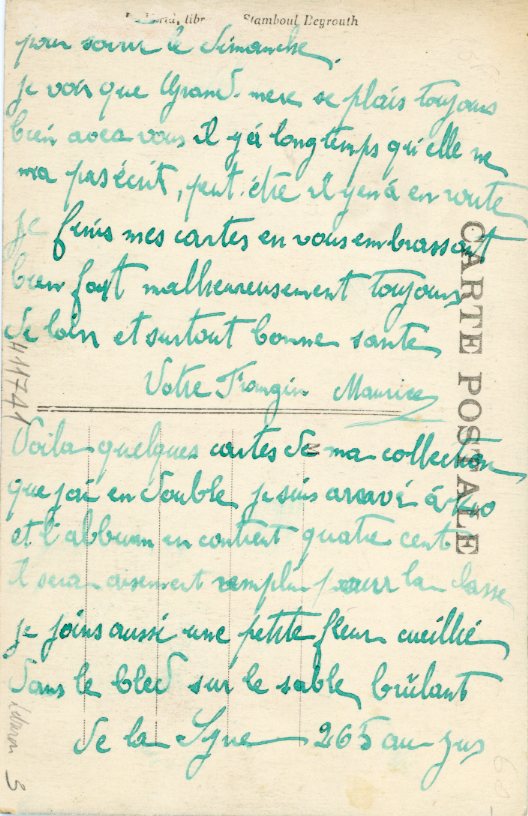 libr Stamboul Beyrouth
pour sortir le Dimanche.
je vois que Grand-mere se plais toujours
bien avec vous il y á longtemps qu'elle ne
ma pas écrit, peut-être il y en á en route
je finis mes cartes en vous embrassant
bien fort malheureusement toujours
de loin et surtout bonne santé
Votre Frangin Maurice
CARTE POSTALE
411741
Voila quelques cartes de ma collection
que j'ai en double je suis arrivé á
et l'album en contient quatre cent
il sera aisement rempli pour la classe
je joins aussi une petite fleur cueillié
dans le bled sur le sable brûlant
de la Syrie 265 au jus